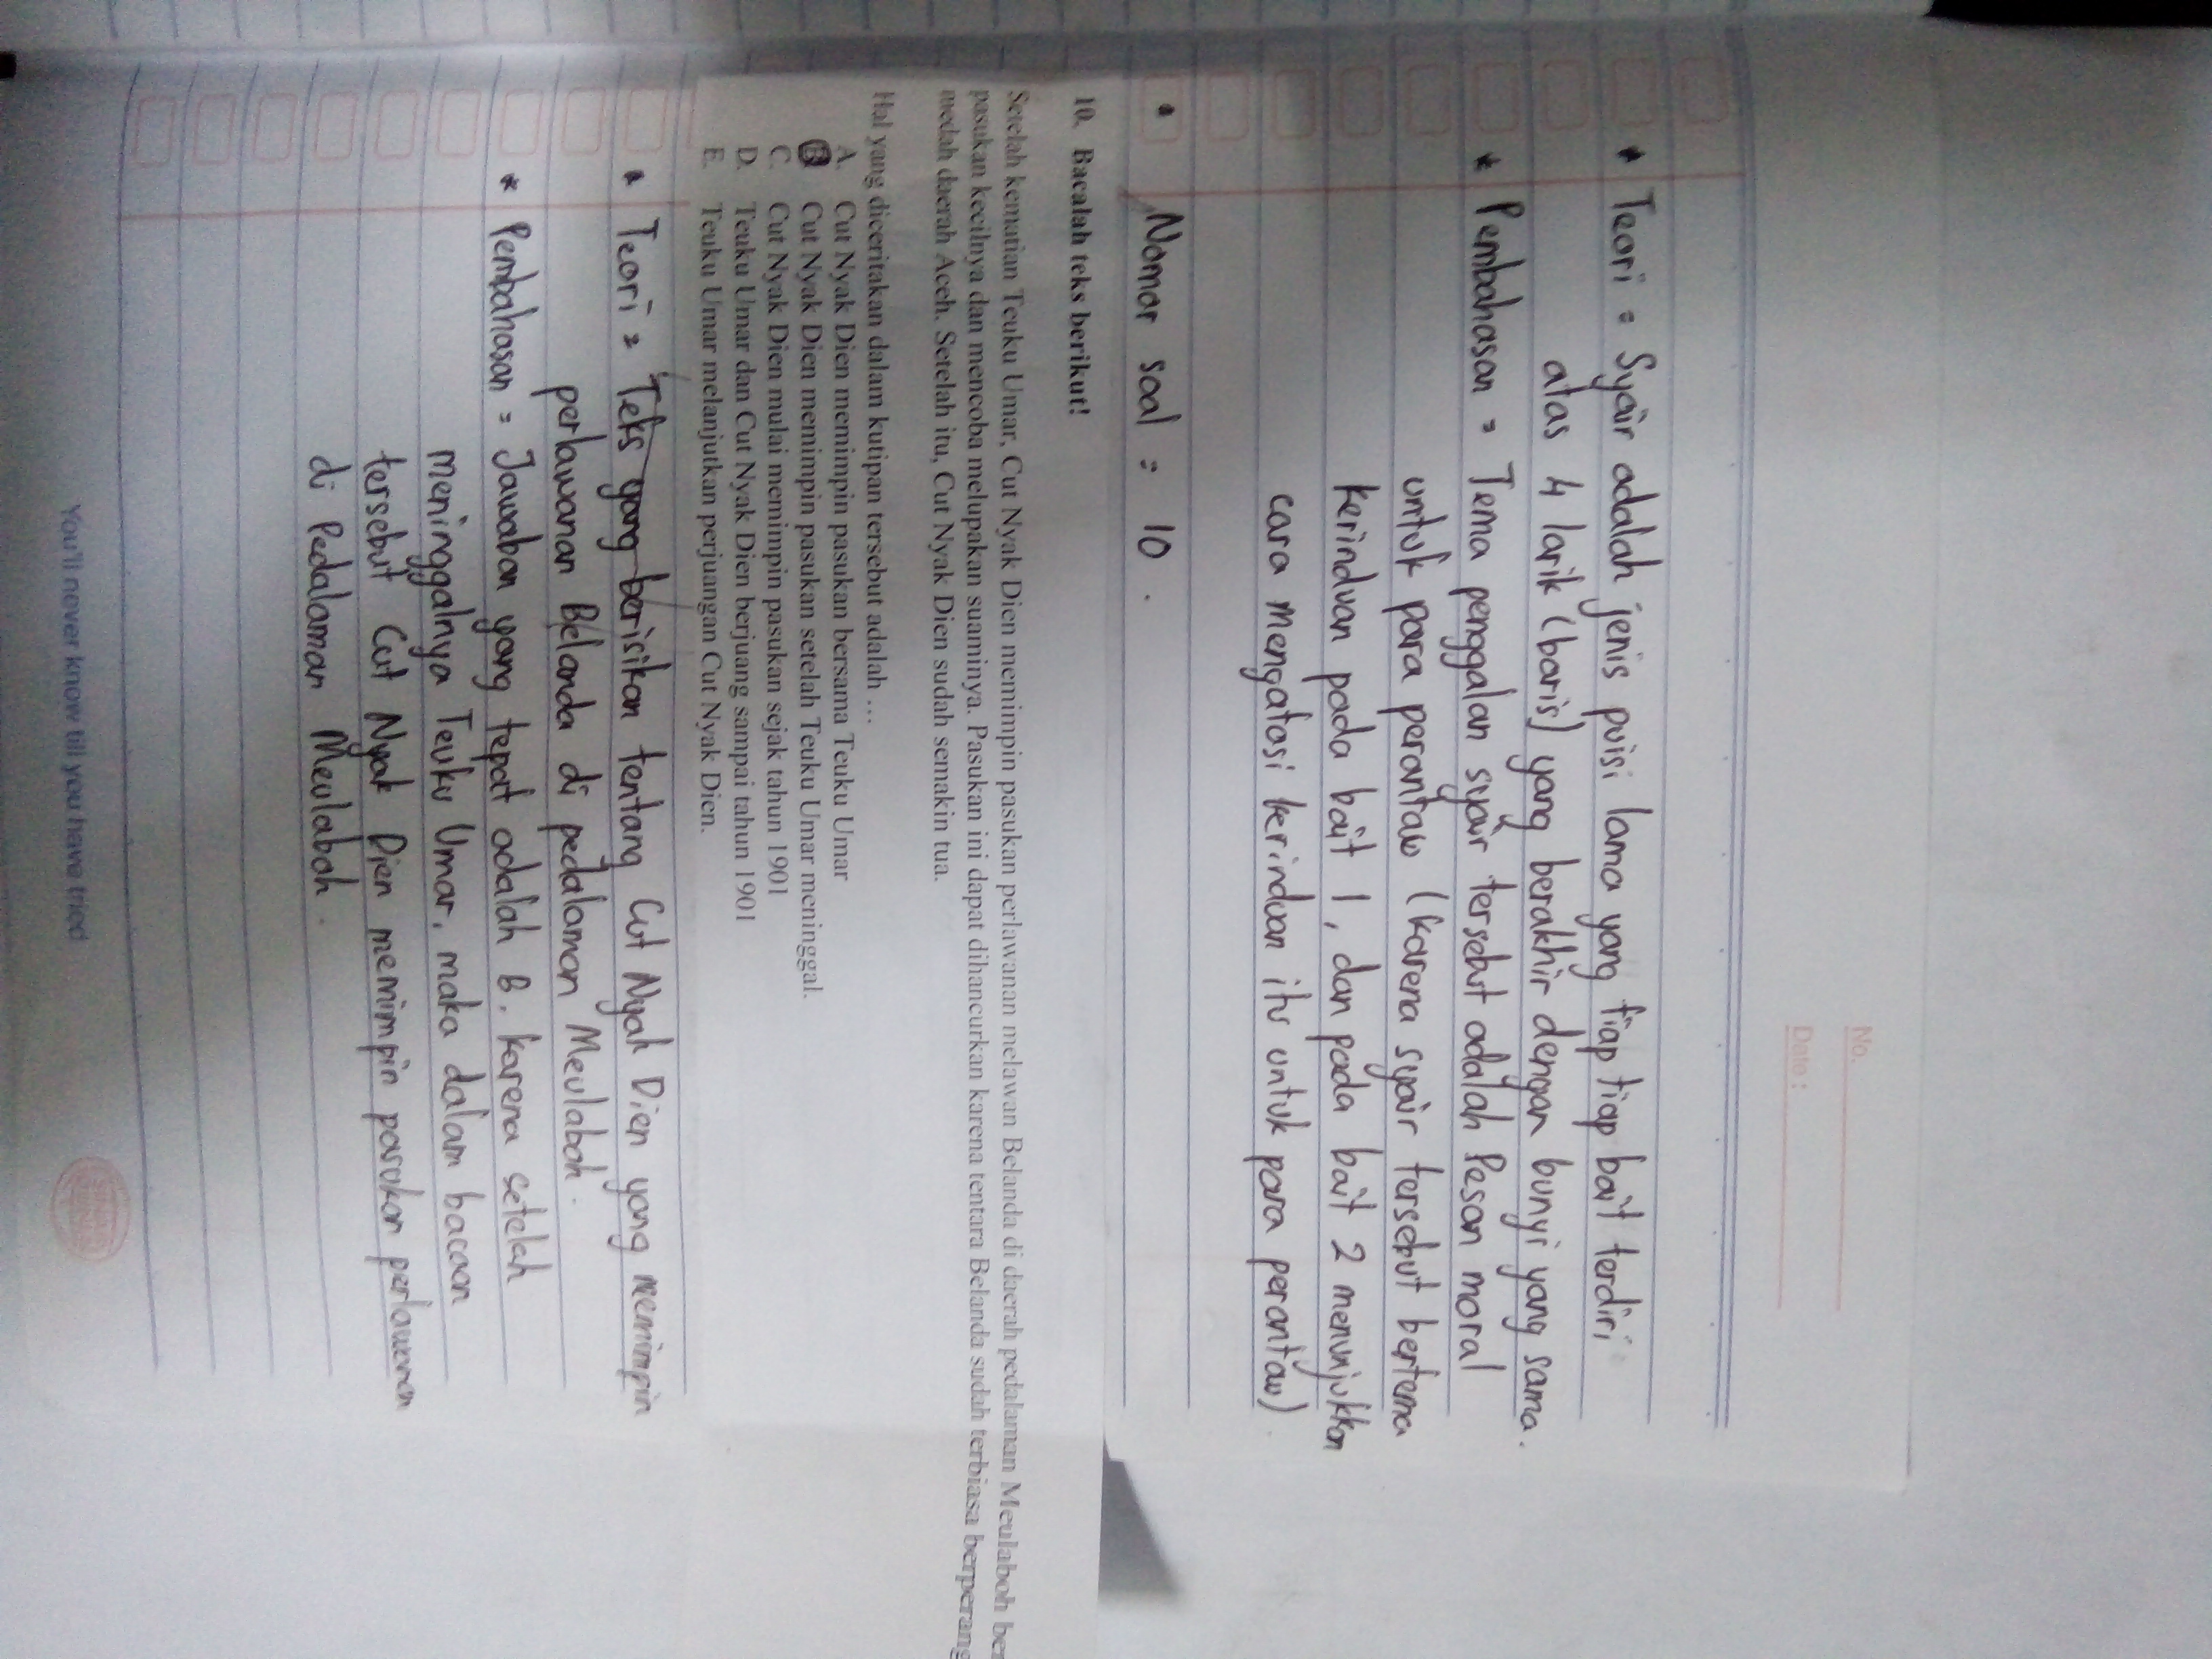 No.
Date :
* Teori = Syair adalah jenis puisi lama yang tiap tiap bait terdiri
atas 4 larik (baris) yang berakhir dengan bunyi yang sama.
* Pembahasan = Tema penggalan syair tersebut adalah Pesan moral
untuk para perantau (karena syair tersebut bertema
kerinduan pada bait 1, dan pada bait 2 menunjukkan
cara mengatasi kerinduan itu untuk para perantau)
• Nomor soal = 10 .
10. Bacalah teks berikut!
Setelah kematian Teuku Umar, Cut Nyak Dien memimpin pasukan perlawanan melawan Belanda di daerah pedalaman Meulaboh ber
pasukan kecilnya dan mencoba melupakan suaminya. Pasukan ini dapat dihancurkan karena tentara Belanda sudah terbiasa berperang
medah daerah Aceh. Setelah itu, Cut Nyak Dien sudah semakin tua.
Hal yang diceritakan dalam kutipan tersebut adalah …
A. Cut Nyak Dien memimpin pasukan bersama Teuku Umar
B Cut Nyak Dien memimpin pasukan setelah Teuku Umar meninggal.
C. Cut Nyak Dien mulai memimpin pasukan sejak tahun 1901
D. Teuku Umar dan Cut Nyak Dien berjuang sampai tahun 1901
E. Teuku Umar melanjutkan perjuangan Cut Nyak Dien.
* Teori = Teks yang berisikan tentang Cut Nyak Dien yang memimpin
perlawanan Belanda di pedalaman Meulaboh.
* Pembahasan = Jawaban yang tepat adalah B. karena setelah
meninggalnya Teuku Umar, maka dalam bacaan
tersebut Cut Nyak Dien memimpin pasukan perlawanan
di Pedalaman Meulaboh.
You'll never know till you have tried